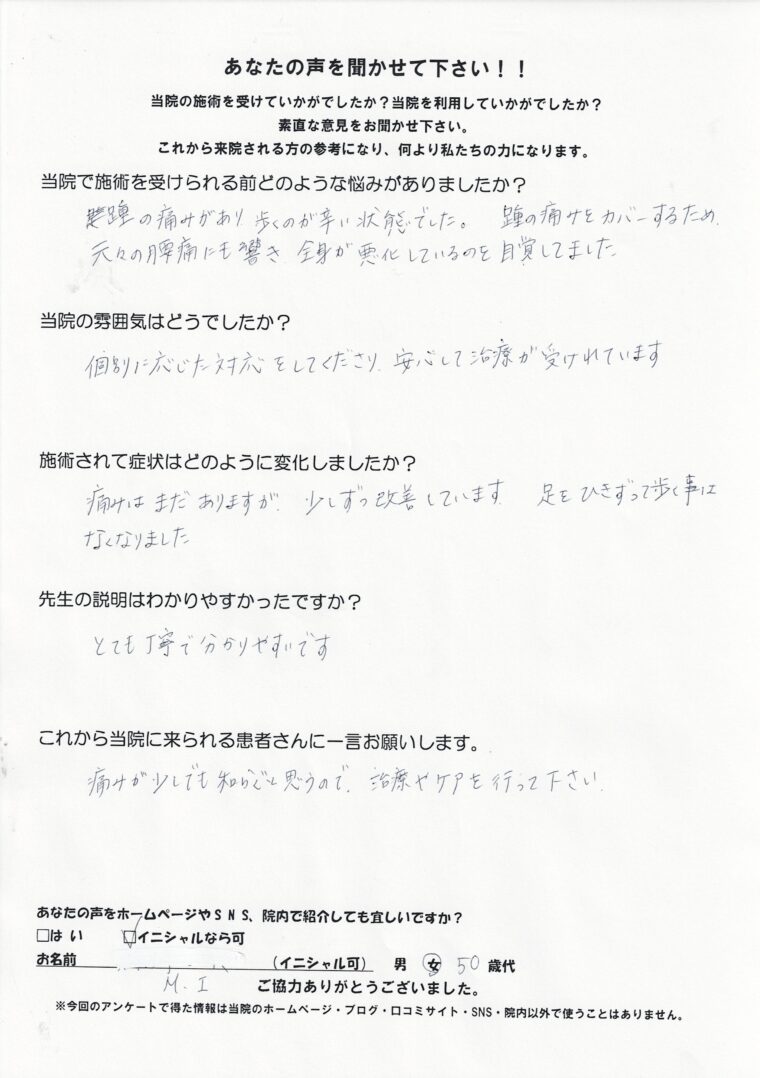 あなたの声を聞かせて下さい！！
当院の施術を受けていかがでしたか？当院を利用していかがでしたか？
素直な意見をお聞かせ下さい。
これから来院される方の参考になり、何より私たちの力になります。
当院で施術を受けられる前どのような悩みがありましたか？
踵の痛みがあり 歩くのが辛い状態でした。 踵の痛みをカバーするため、
元々の腰痛にも響き 全身が悪化しているのを自覚してました
当院の雰囲気はどうでしたか？
個別に応じた対応をしてくださり、安心して治療が受けれています
施術されて症状はどのように変化しましたか？
痛みはまだありますが、少しずつ改善しています 足をひきずって歩く事は
なくなりました
先生の説明はわかりやすかったですか？
とても丁寧で分かりやすいです
これから当院に来られる患者さんに一言お願いします。
痛みが少しでも和らぐと思うので、治療やケアを行って下さい
あなたの声をホームページやＳＮＳ、院内で紹介しても宜しいですか？
□はい ☑イニシャルなら可
お名前 （イニシャル可） 男 女 50歳代
M. I ご協力ありがとうございました。
※今回のアンケートで得た情報は当院のホームページ・ブログ・口コミサイト・SNS・院内以外で使うことはありません。